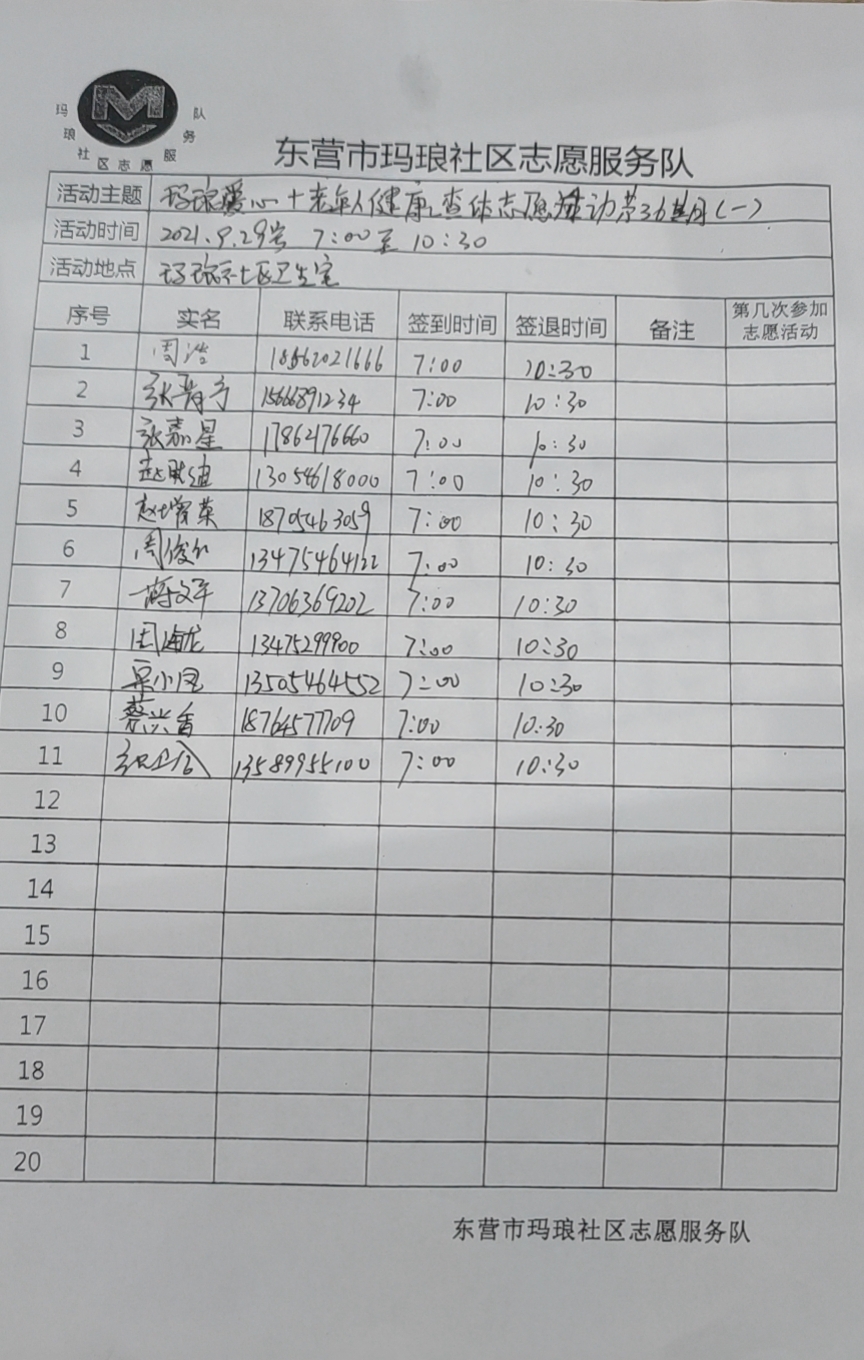 玛琅社区志愿服务队
东营市玛琅社区志愿服务队
活动主题 玛琅爱心十老年人健康查体志愿活动第36期(一)
活动时间 2021.9.29号 7:00至10:30
活动地点 玛琅社区卫生室
序号 实名 联系电话 签到时间 签退时间 备注 第几次参加志愿活动
1 周浩 18562021666 7:00 10:30
2 15666891234 7:00 10:30
3 张嘉星 17862176660 7:00 10:30
4 13054618000 7:00 10:30
5 赵增荣 18705463059 7:00 10:30
6 13475464122 7:00 10:30
7 蒋文军 13706369202 7:00 10:30
8 周海龙 13475299900 7:00 10:30
9 13505464552 7:00 10:30
10 蔡兴香 18764577709 7:00 10:30
11 13589955100 7:00 10:30
12
13
14
15
16
17
18
19
20
东营市玛琅社区志愿服务队